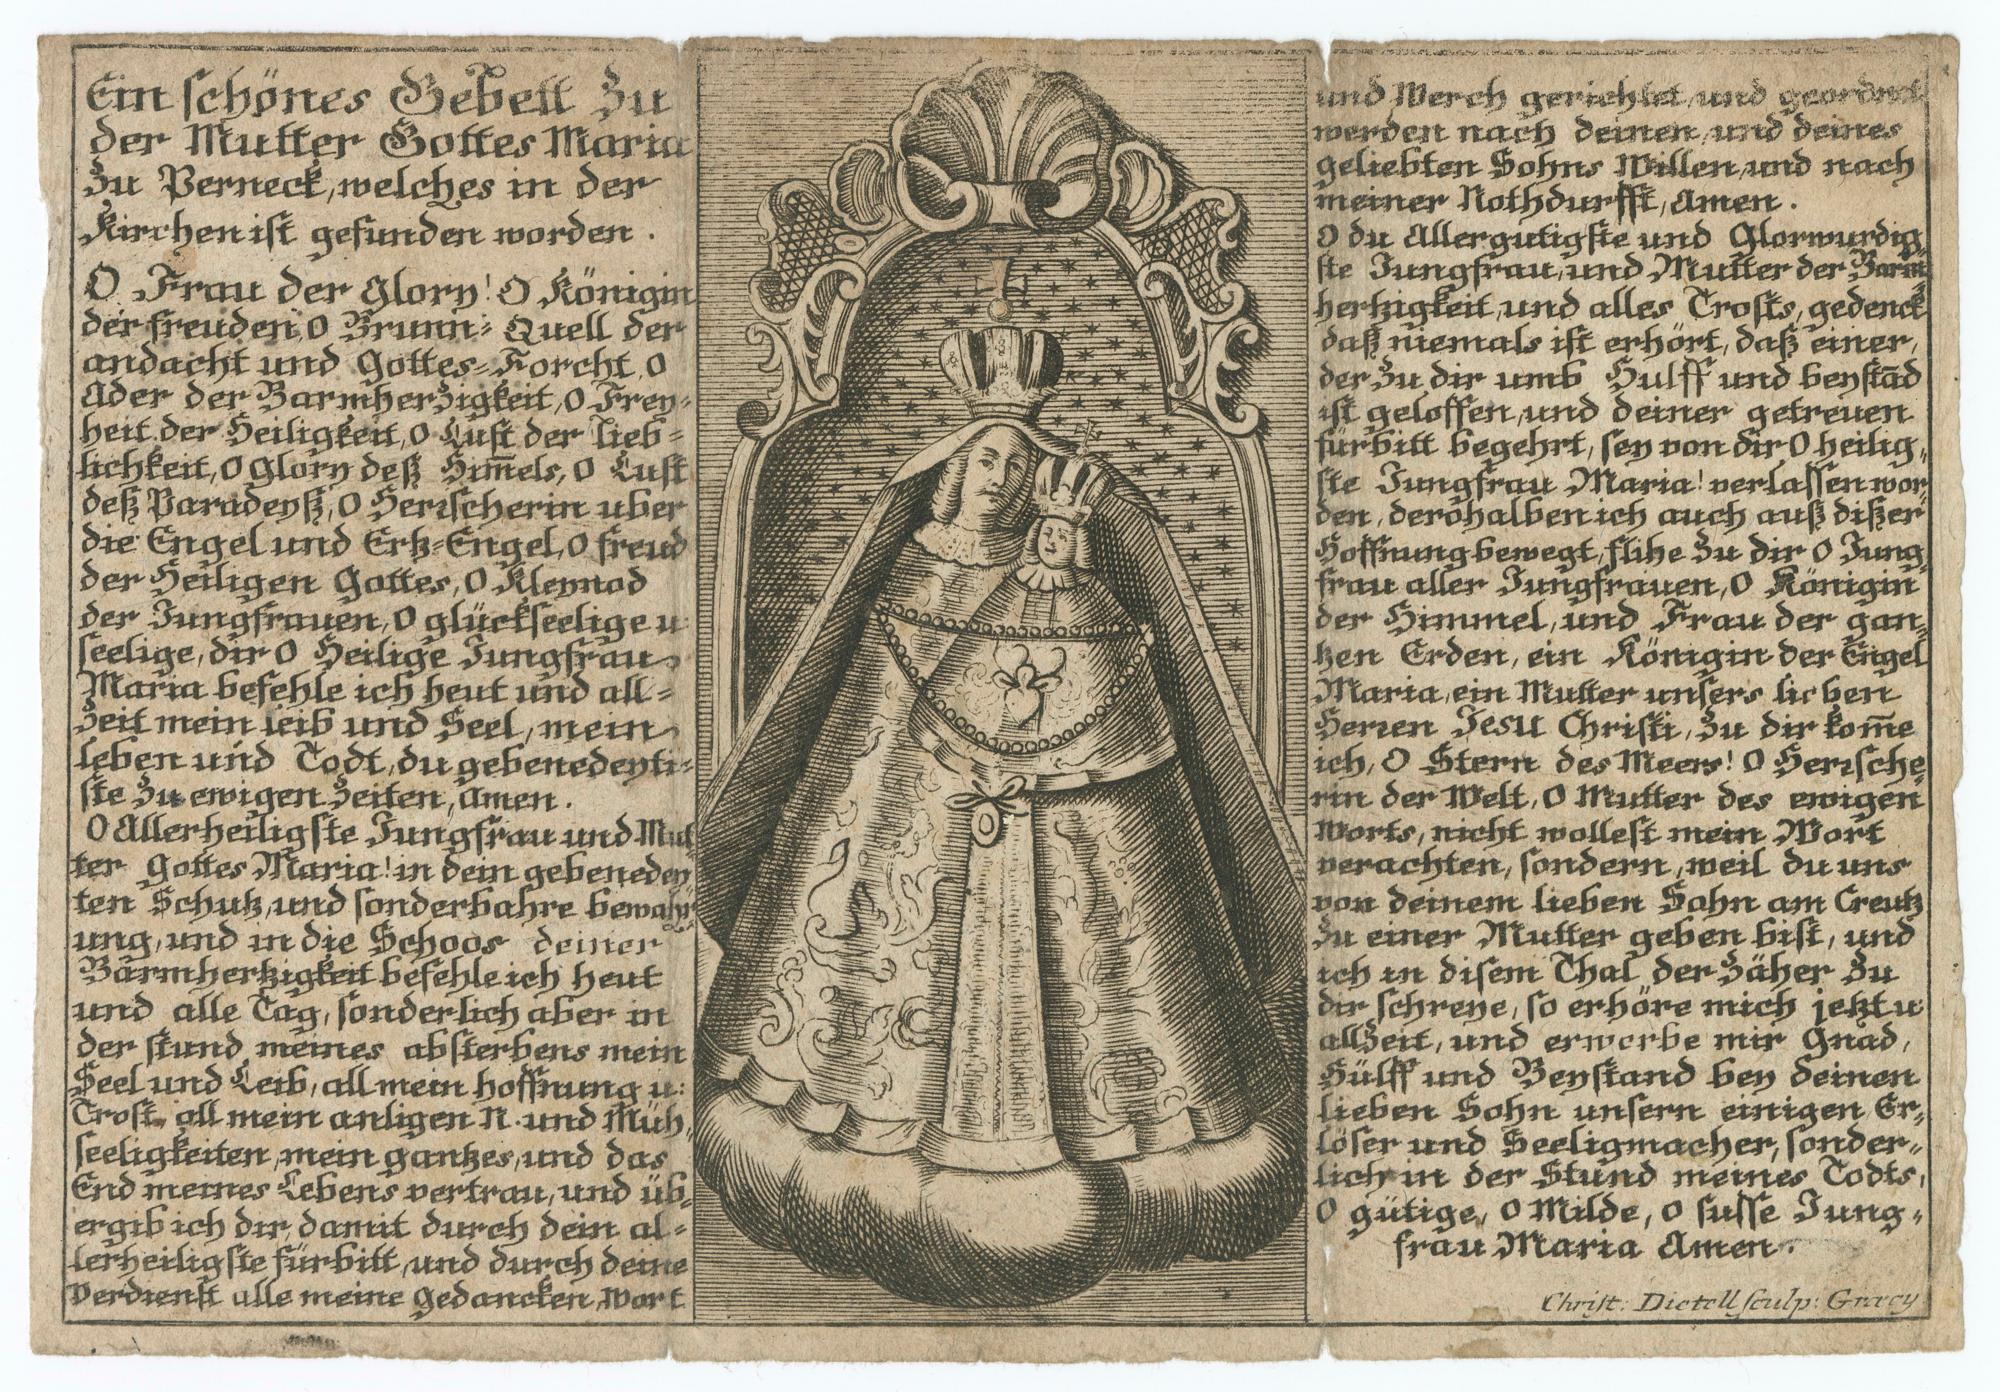 Ein schönes Gebett Zu
der Mutter Gottes Maria
Zu Perneck, welches in der
Kirchen ist gefunden worden.
O Frau der Glory! O Königin
der freuden, O Brunn= Quell der
andacht und Gottes=Forcht, O
Ader der Barmherzigkeit, O Frey=
heit der Heiligkeit, O Lust der Lieb=
lichkeit, O Glory deß Him̄els, O Lust
deß Paradeyß, O Herrscherin uber
die Engel und Ertz=Engel, O freud
der Heiligen Gottes, O Kleynod
der Jungfrauen, O glückseelige u:
seelige, dir O Heilige Jungfrau
Maria befehle ich heut und all=
Zeit mein leib und Seel, mein
leben und Todt, du gebenedeyti=
ste Zu ewigen Zeiten, Amen.
O Allerheiligste Jungfrau und Mut=
ter Gottes Maria! in dein gebenedey
ten Schutz, und sonderbahre bewahr
ung, und in die Schoos deiner
Barmhertzigkeit befehle ich heut
und alle Tag, sonderlich aber in
der stund meines absterbens mein
Seel und Leib, all mein hoffnung u:
Trost, all mein anligen N. und Müh,
seeligkeiten, mein gantzes, und das
End meines Lebens vertrau, und üb,
ergib ich dir, damit durch dein al=
lerheiligste fürbitt, und durch deine
Verdienst alle meine Gedancken, Wort
und Werch gerichtet, und geordnet
werden nach deinen, und deines
geliebten Sohns Willen, und nach
meiner Nothdurfft, Amen.
O du Allergutigste und Glorwurdig,
ste Jungfrau, und Mutter der Barm
hertzigkeit, und alles Trosts, gedenck
daß niemals ist erhört, daß einer,
der Zu dir umb Hulff und beystād
ist geloffen, und deiner getreuen
fürbitt begehrt, sey von dir O heilig,
ste Jungfrau Maria! verlassen wor,
den, derohalben ich auch auß dißer
Hoffnung bewegt, flihe Zu dir O Jung,
frau aller Jungfrauen, O Königin
der Himmel, und Frau der gan,
tzen Erden, ein Königin der Engel
Maria, ein Mutter unsers lieben
Herren Jesu Christi, Zu dir kom̄e
ich, O Stern des Meers! O Herrsche,
rin der Welt, O Mutter des ewigen
Worts, nicht wollest mein Wort
verachten, sondern, weil du uns
von deinem lieben Sohn am Creutz
Zu einer Mutter geben bist, und
ich in disem Thal der Zäher Zu
dir schreye, so erhöre mich jetzt u:
allZeit, und erwerbe mir Gnad,
Hülff und Beystand bey deinen
lieben Sohn unsern einigen Er,
löser und Seeligmacher, sonder,
lich in der Stund meines Todts,
O gütige, O Milde, O susse Jung,
frau Maria Amen.
Christ: Dietell sculp: Græcy